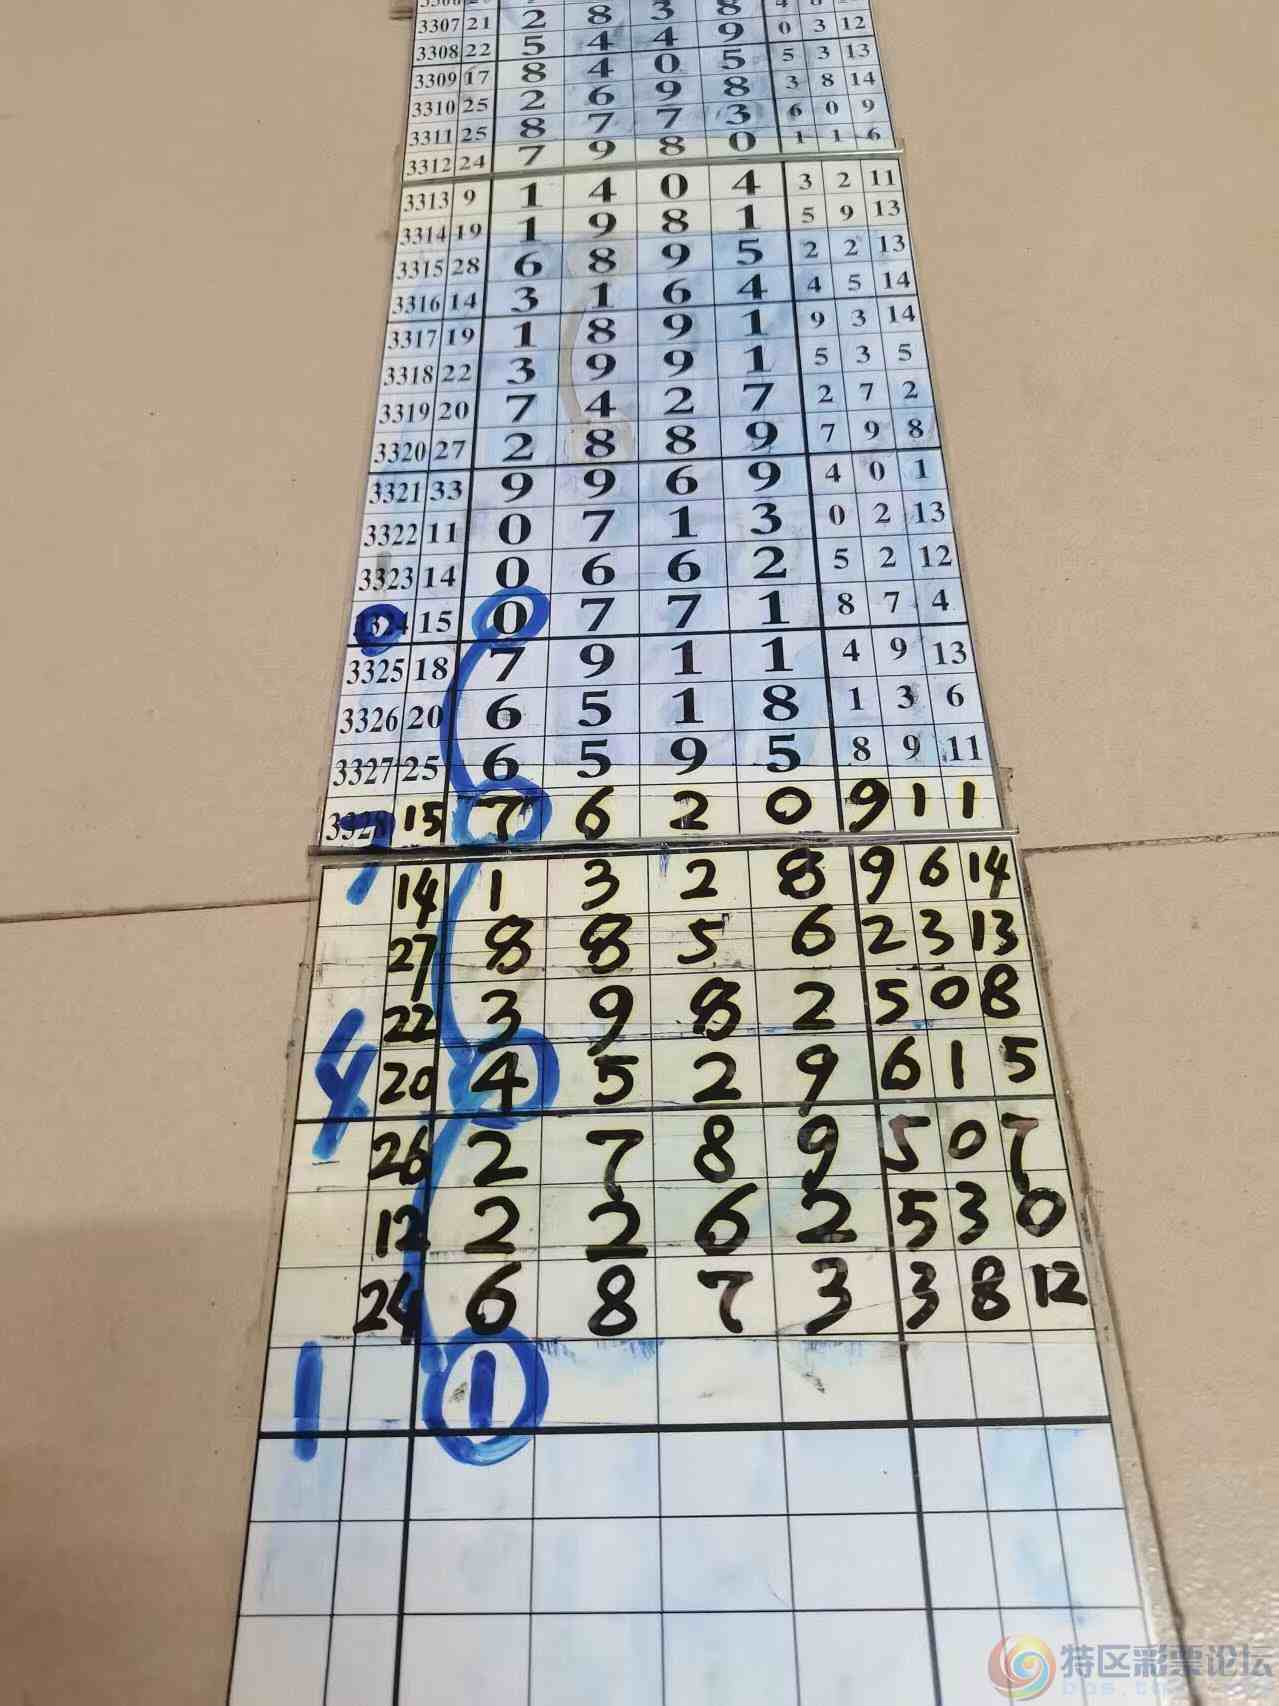 3307 21 2 8 3 8 0 3 12
3308 22 5 4 4 9 5 3 13
3309 17 8 4 0 5 3 8 14
3310 25 2 6 9 8 6 0 9
3311 25 8 7 7 3 1 1 6
3312 24 7 9 8 0
3313 9 1 4 0 4 3 2 11
3314 19 1 9 8 1 5 9 13
3315 28 6 8 9 5 2 2 13
3316 14 3 1 6 4 4 5 14
3317 19 1 8 9 1 9 3 14
3318 22 3 9 9 1 5 3 5
3319 20 7 4 2 7 2 7 2
3320 27 2 8 8 9 7 9 8
3321 33 9 9 6 9 4 0 1
3322 11 0 7 1 3 0 2 13
3323 14 0 6 6 2 5 2 12
3324 15 0 7 7 1 8 7 4
3325 18 7 9 1 1 4 9 13
3326 20 6 5 1 8 1 3 6
3327 25 6 5 9 5 8 9 11
3328 15 7 6 2 0 9 1 1
14 1 3 2 8 9 6 14
27 8 8 5 6 2 3 13
22 3 9 8 2 5 0 8
4 20 4 5 2 9 6 1 5
26 2 7 8 9 5 0 7
12 2 2 6 2 5 3 0
24 6 8 7 3 3 8 12
1 1
特区彩票论坛